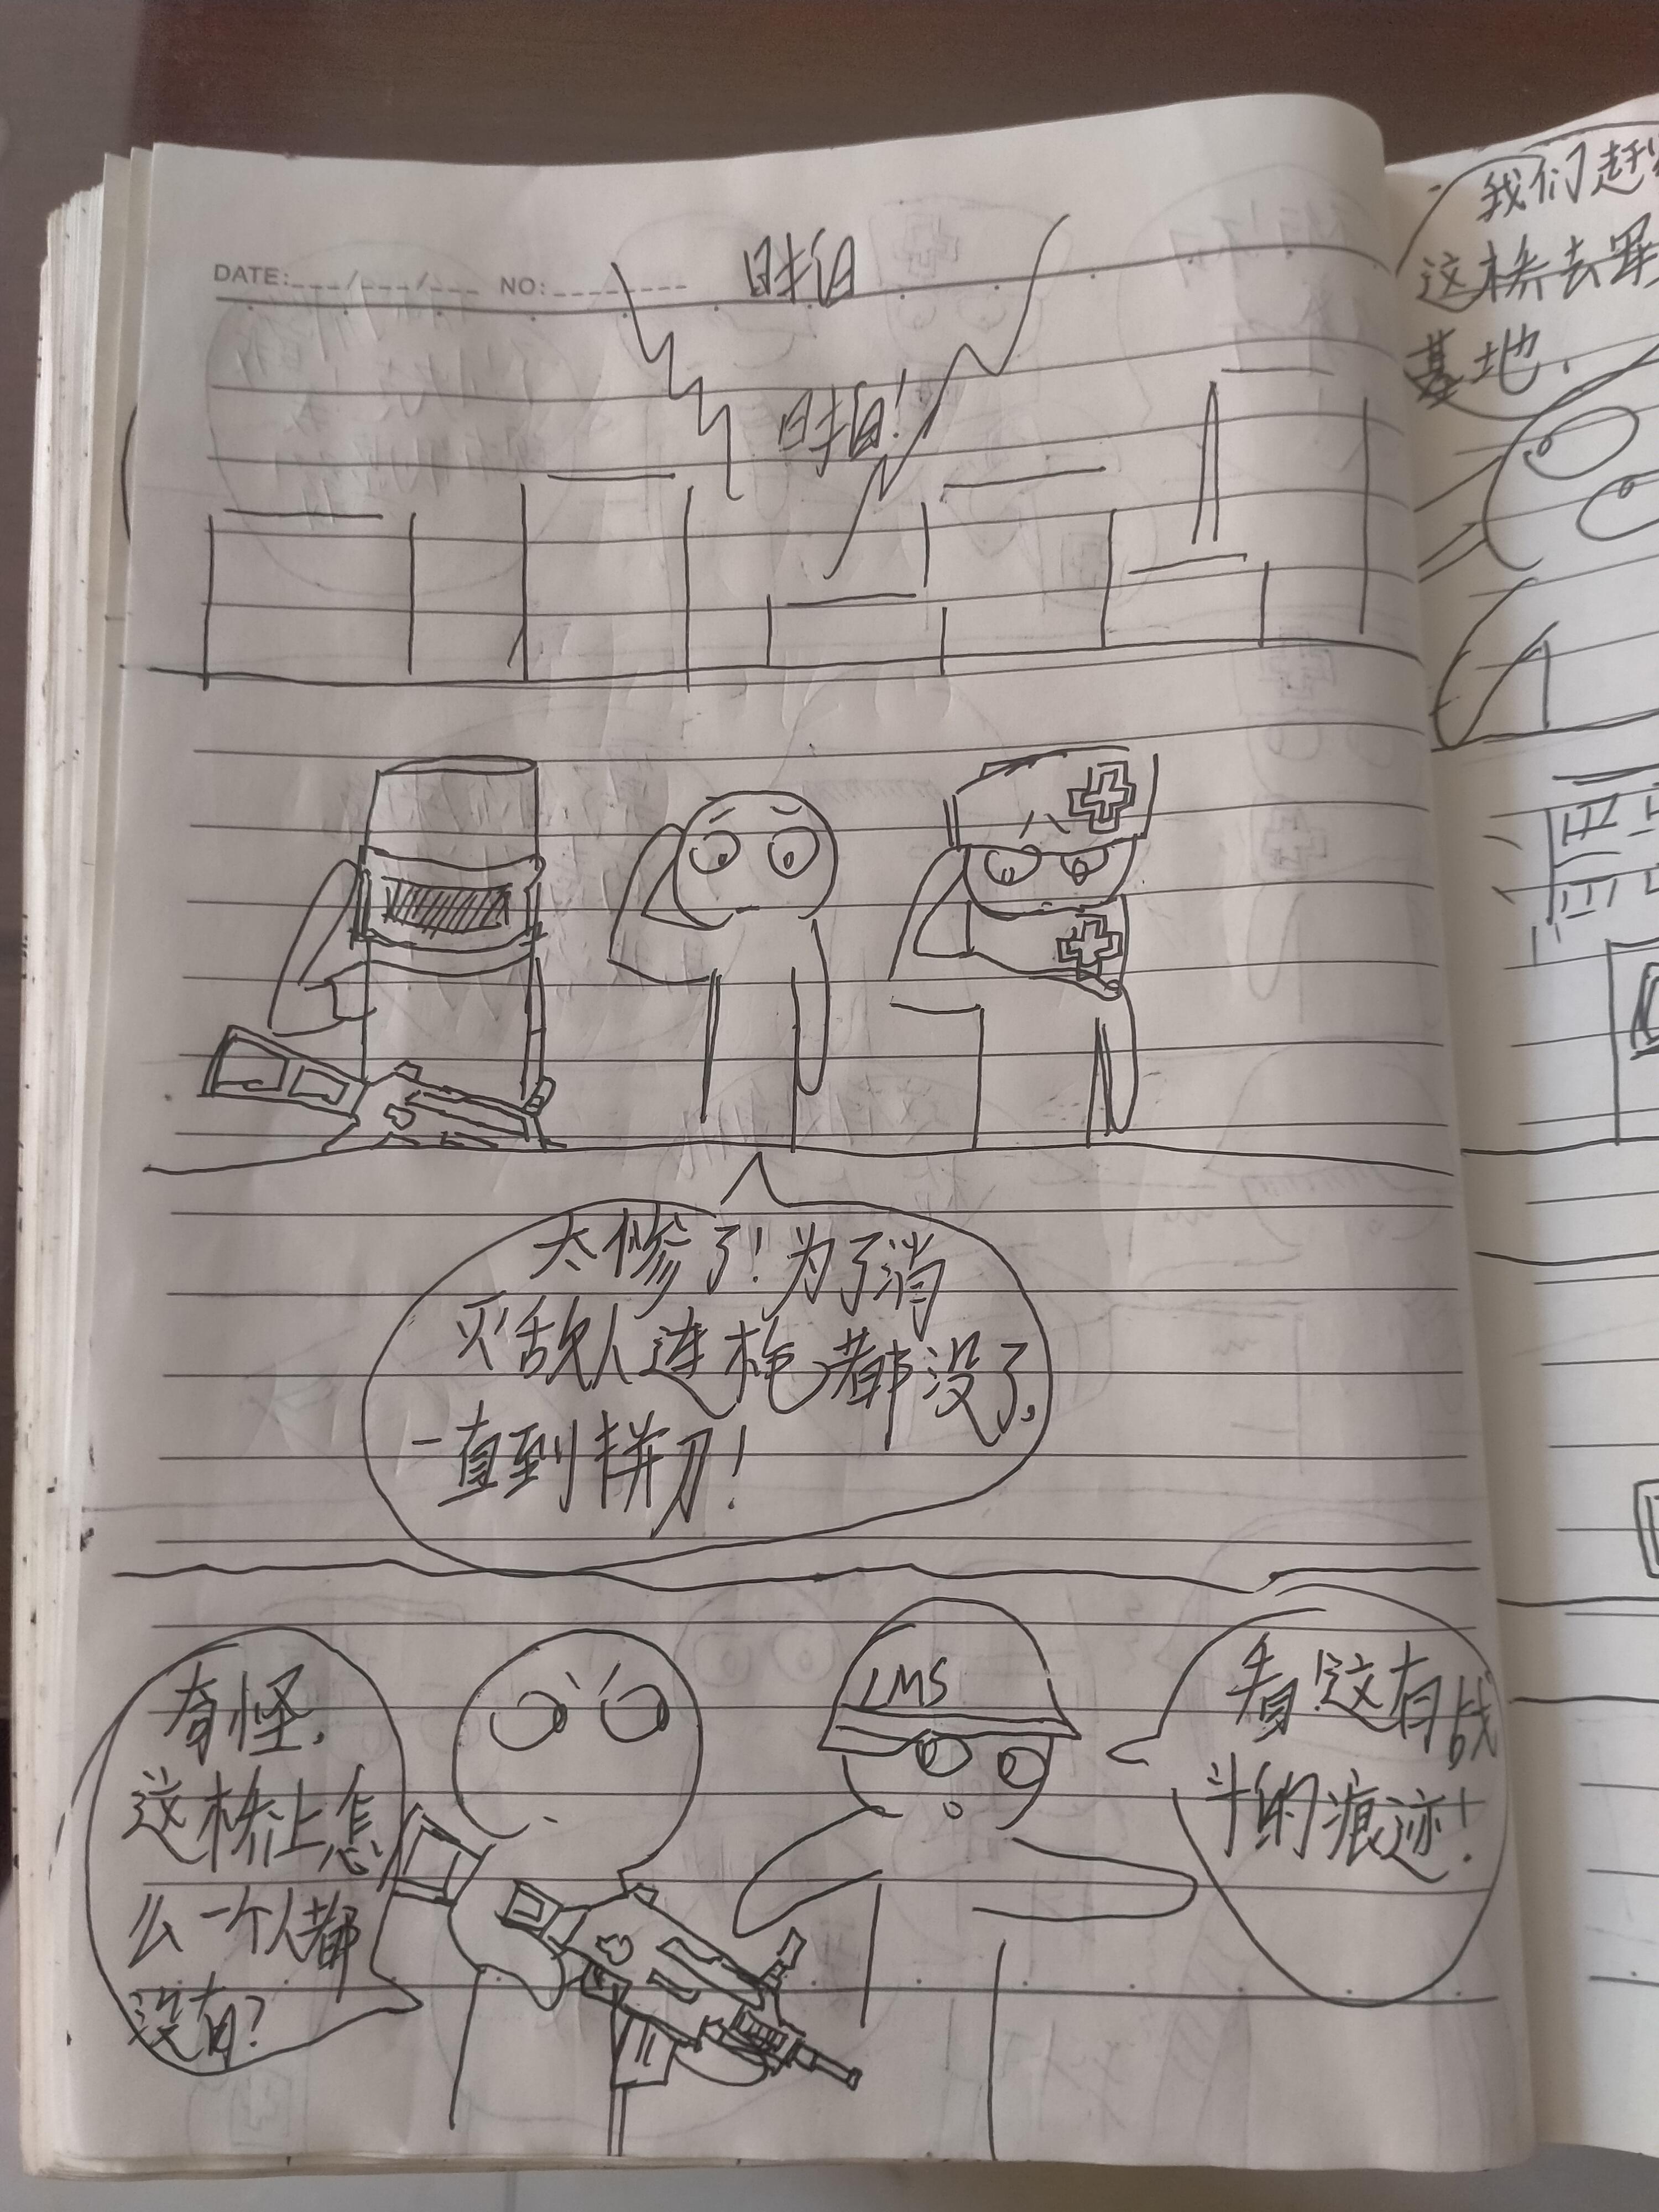 DATE:___/___/___ NO:________
啪
啪!
太惨了!为了消
灭敌人连枪都没了,
一直到拼刀!
奇怪,
这桥上怎
么一个人都
没有?
看!这有战
斗的痕迹!
我们赶
这桥去
基地.